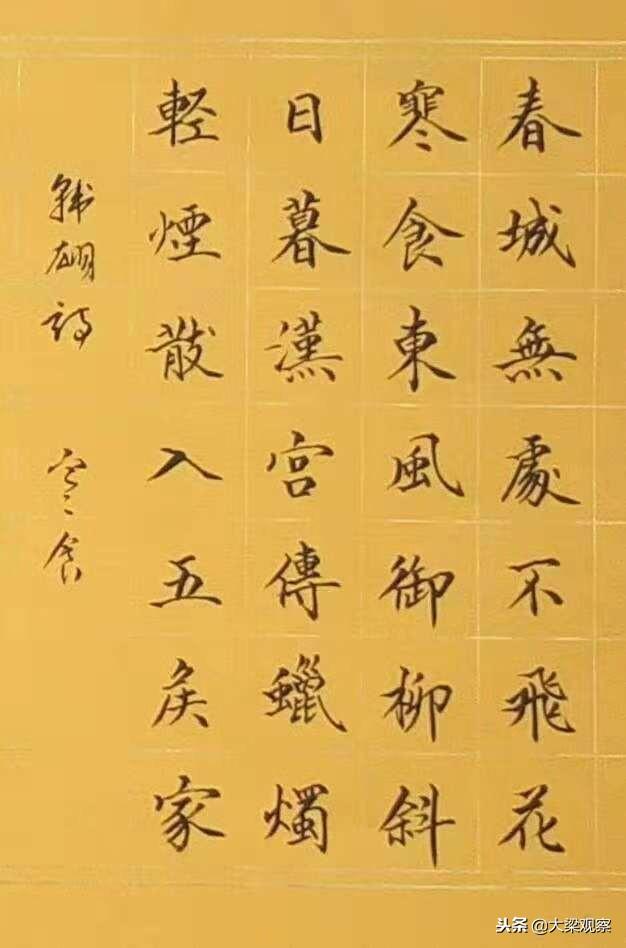 春城無處不飛花
寒食東風御柳斜
日暮漢宮傳蠟燭
輕煙散入五侯家
韩翃詩 寒食
头条 @大梁观察